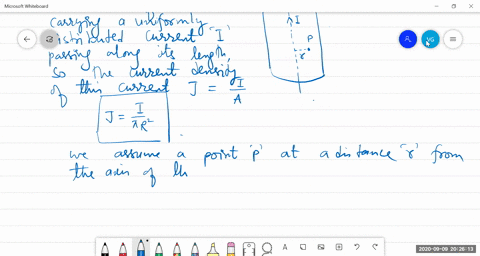 Microsoft Whiteboard
carrying a uniformly
distributed current 'I'
passing along its length,
so the current density
of this current J = I/A
J = I/πR²
we assume a point 'p' at a distance 'r' from
the axis of th
I
P
r
VG
2020-09-09 20:26:13